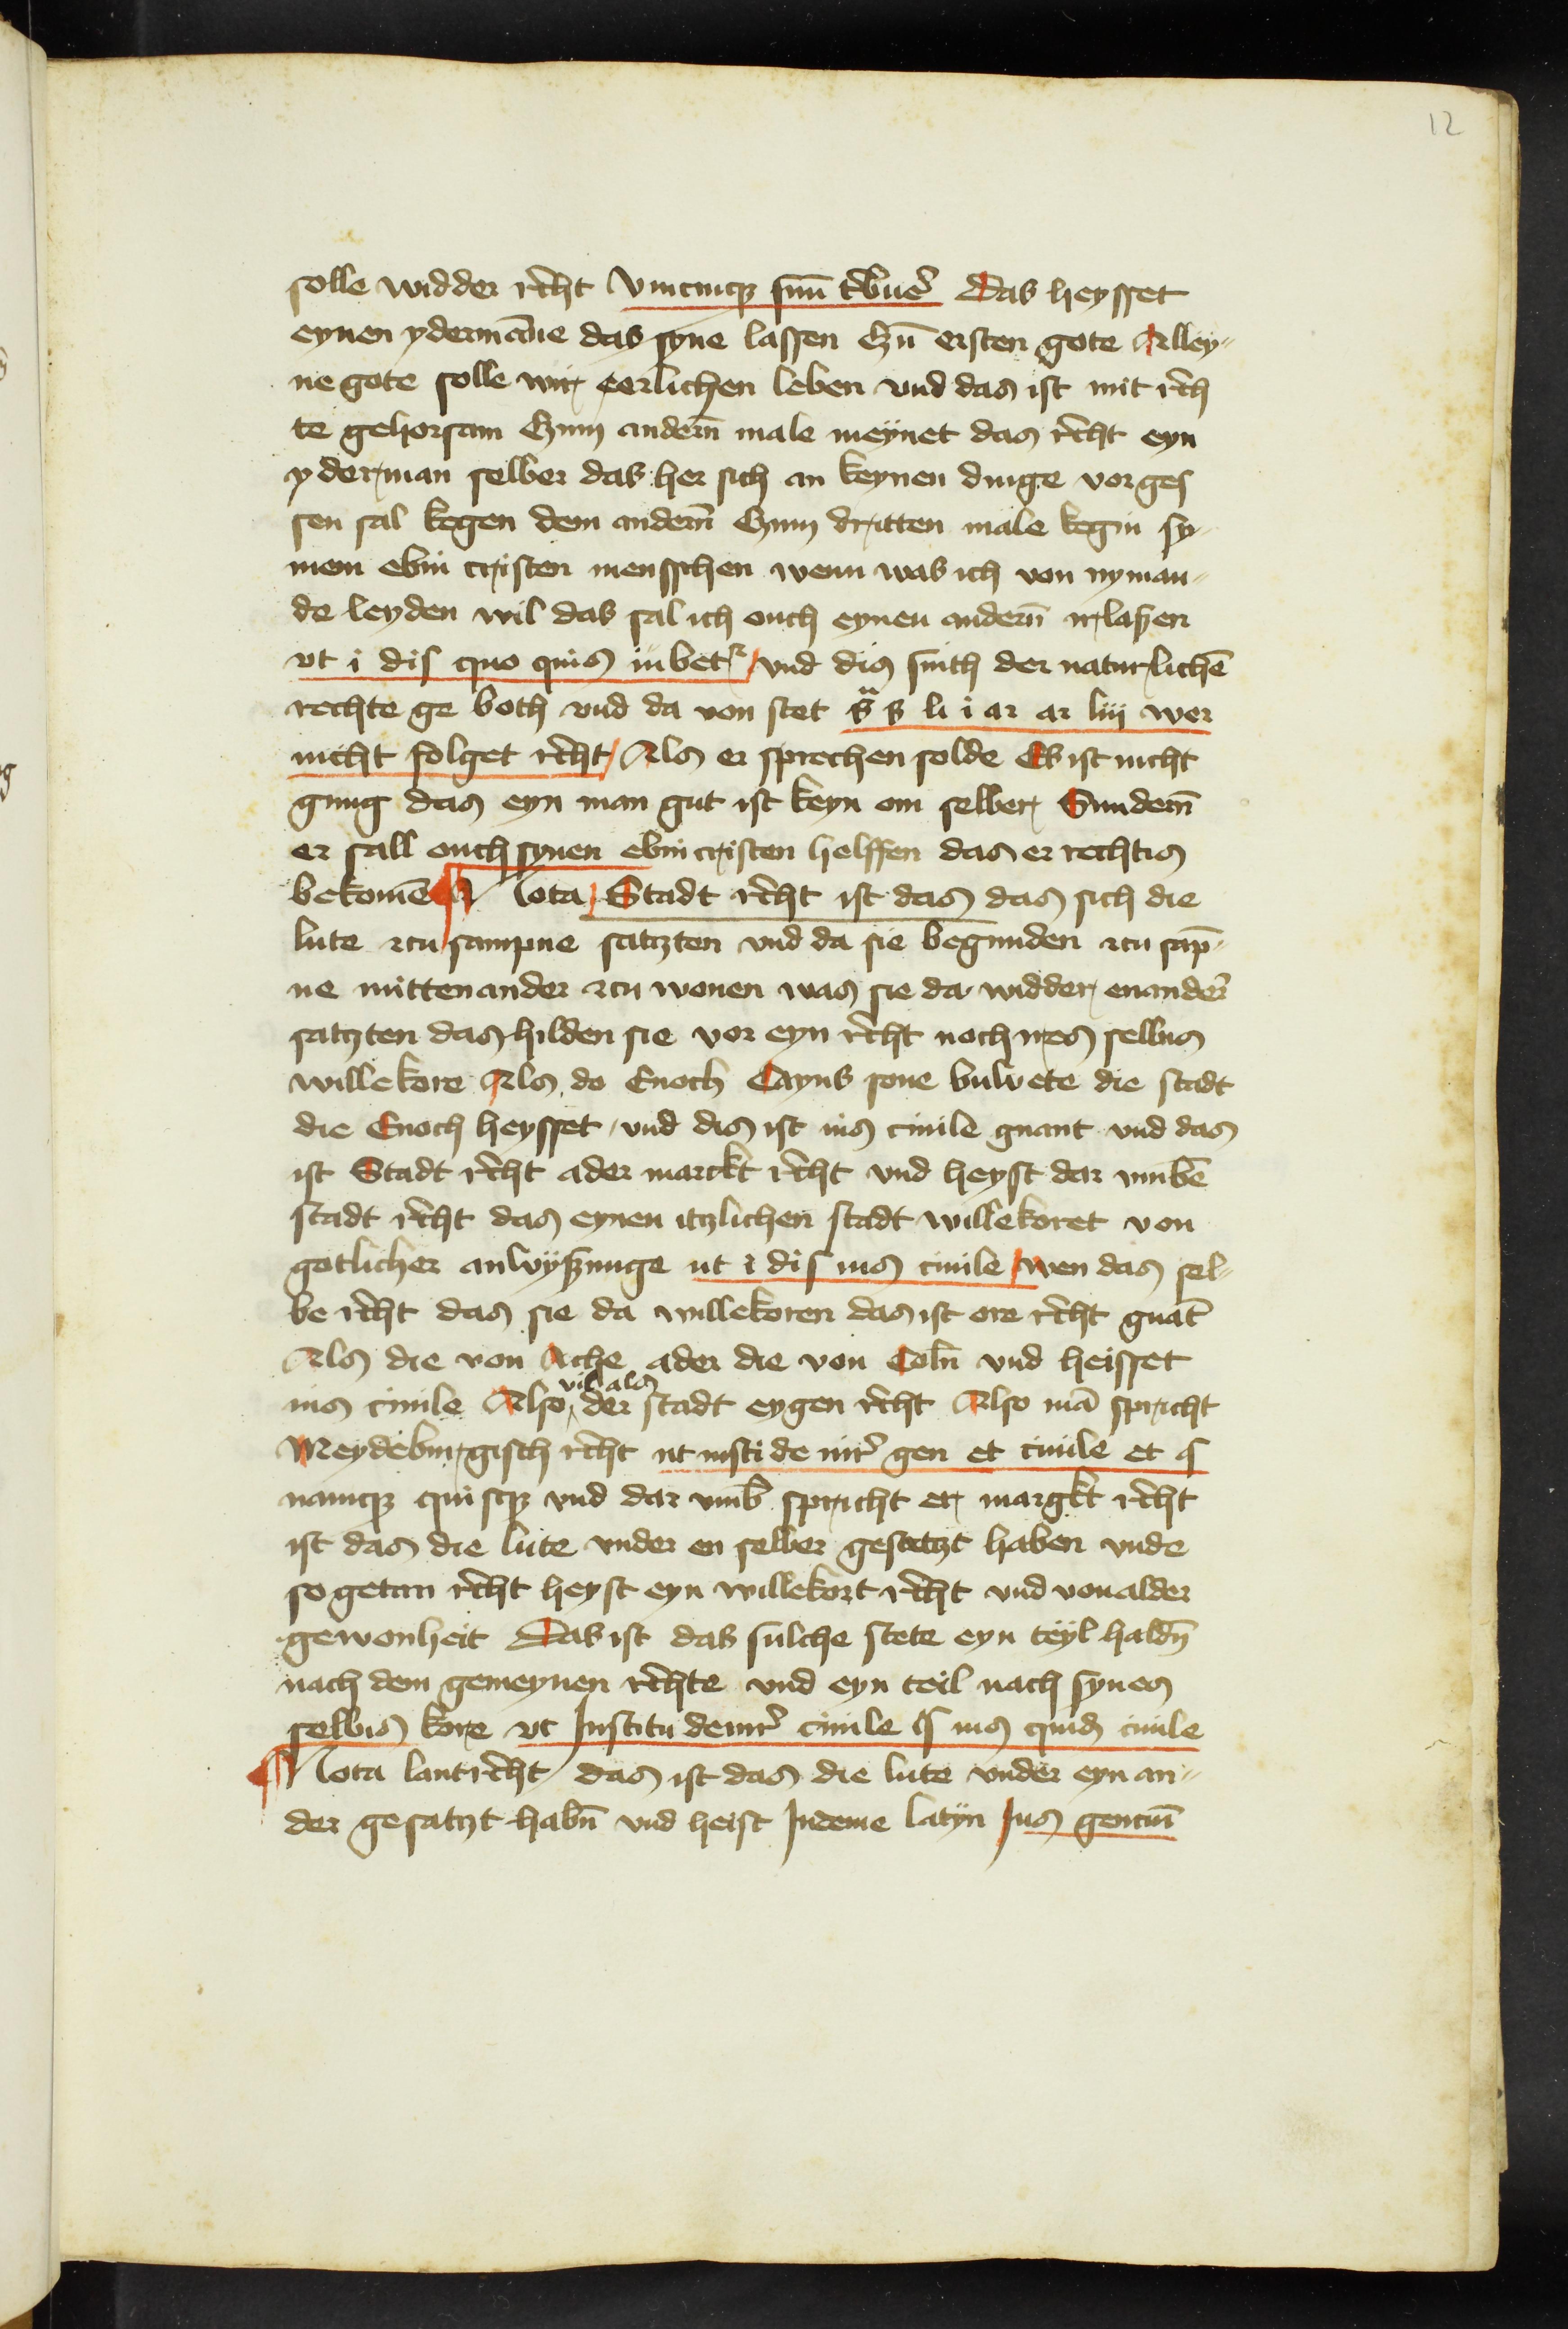 12
solle widder rĉht Vnicuiqꝫ suū tͥbueͬ Das heysset
eynen ydermāne das syne lassen Czū ersten gote Alley-
ne gote solle wir eerlichen leben vnd das ist mit rĉh
te gehorsam Czum andern̄ male meynet das rĉht eyn
yderman selber das her sich an keynen dinge vorges
sen sal kegen dem andern̄ Czum dritten male kegin sy-
nem ebin cristen mensschen wenn was ich von nyman-
de leyden wil das sal ich ouch eynen andern̄ irlaszen
vt i dis quo quis iubetᷣ vnd dis sinth der naturlichē
rechte ge both vnd da von stet li i ar ar liij wer
nicht folget rĉht Als er sprechen solde Es ist nicht
gnug das eyn man gut ist keyn om selber Sundern̄
er sall ouch synen ebin cristen helffen das er rechtis
bekomē Nota Stadt rĉht ist das das sich die
lute zcu sampne satzten vnd da sie begunden zcu sap̄-
ne mittenander zcu wonen was sie da widder enanderͤ
satzten das hilden sie vor eyn rĉht noch ires selbis
willekore Als do Enoch Cayns sone buwete die stadt
die Enoch heysset vnd dis ist ius ciuile gnant vnd das
ist Stadt rĉht ader marckt rĉht vnd heyst dar vmbē
stadt rĉht das eynen itzlichen stadt willekoret von
gotlicher anwyszunge ut i dis ius ciuile wen das sel-
be rĉht das sie da willekoren das ist ore rĉht gnāt
Als die von Ache ader die von Coln̄ vnd heisset
vil als
ius ciuile Also der stadt eygen rĉht Also mā spricht
Meydeburgisch rĉht ut insti de iurͤ gen et ciuile et §
namqꝫ quisqꝫ vnd dar vmb̄ spricht er margkt rĉht
ist das die lute vnder en selber gesetzt haben vnde
so getan rĉht heyst eyn willekort rĉht vnd von alder
gewonheit Das ist das sulche stete eyn teyl haldn̄
nach dem gemeynen rĉhte vnd eyn teil nach synes
selbis kore vt Institu de iurͤ ciuile § ius quid ciuile
Nota lantrĉht das ist das die lute vnder eyn an-
der gesatzt habn̄ vnd heist Indeme latyn Jus genciū